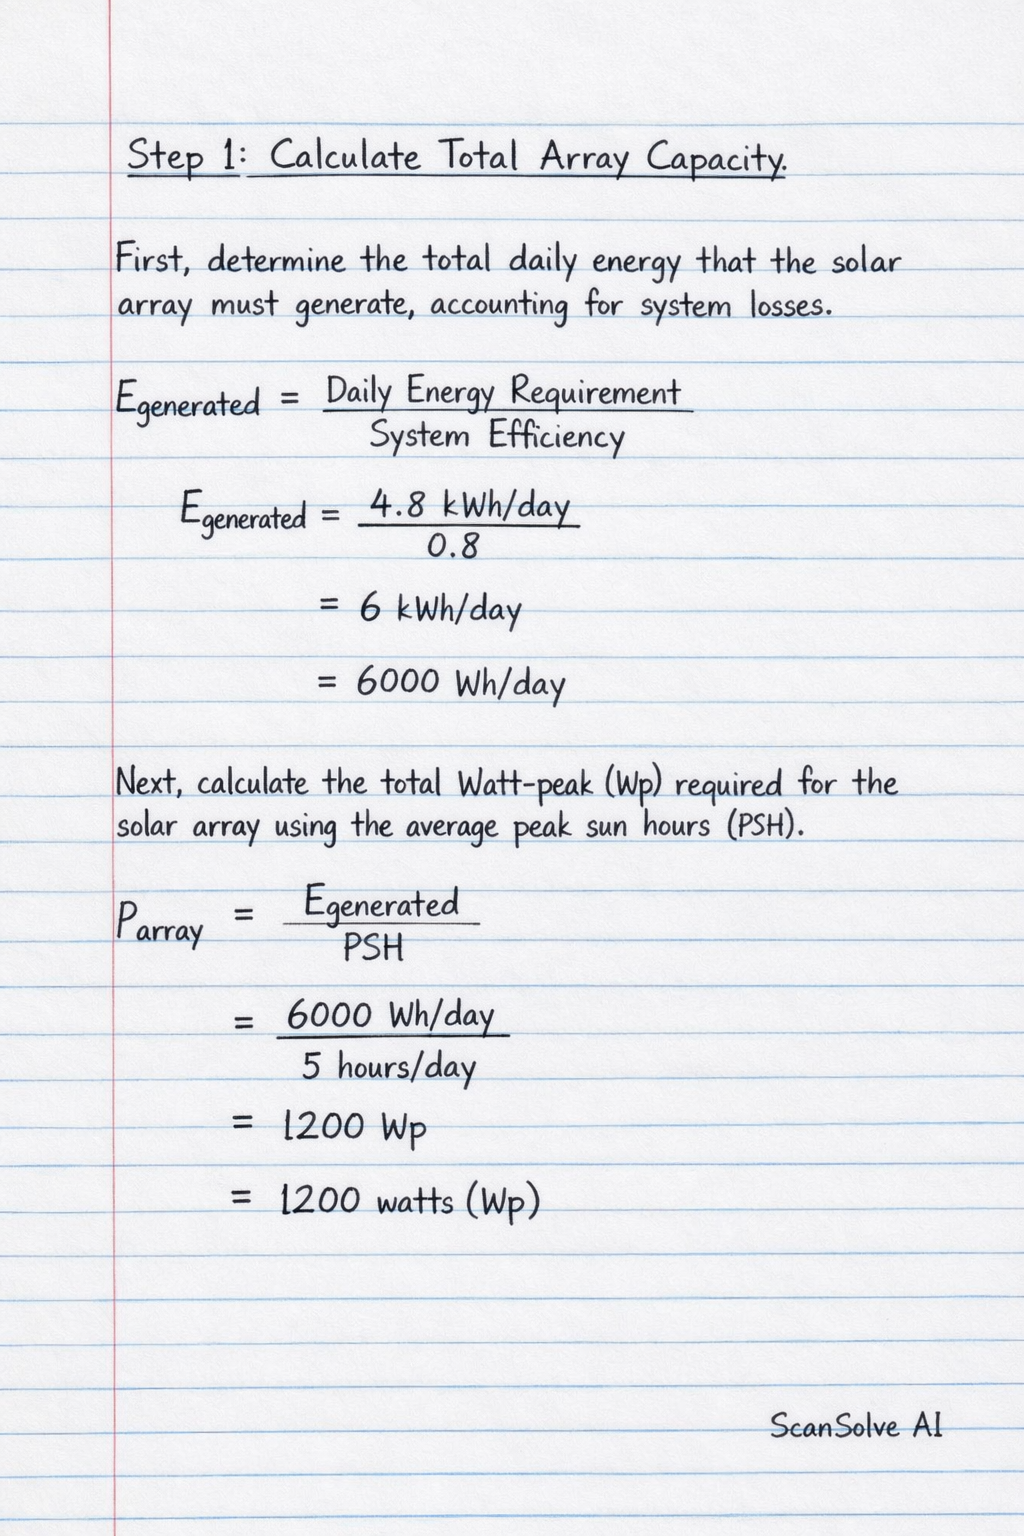 Step 1: Calculate Total Array Capacity.
First, determine the total daily energy that the solar
array must generate, accounting for system losses.
Egenerated = Daily Energy Requirement
System Efficiency
Egenerated = 4.8 kWh/day
0.8
= 6 kWh/day
= 6000 Wh/day
Next, calculate the total Watt-peak (Wp) required for the
solar array using the average peak sun hours (PSH).
Parray = Egenerated
PSH
= 6000 Wh/day
5 hours/day
= 1200 Wp
= 1200 watts (Wp)
ScanSolve AI